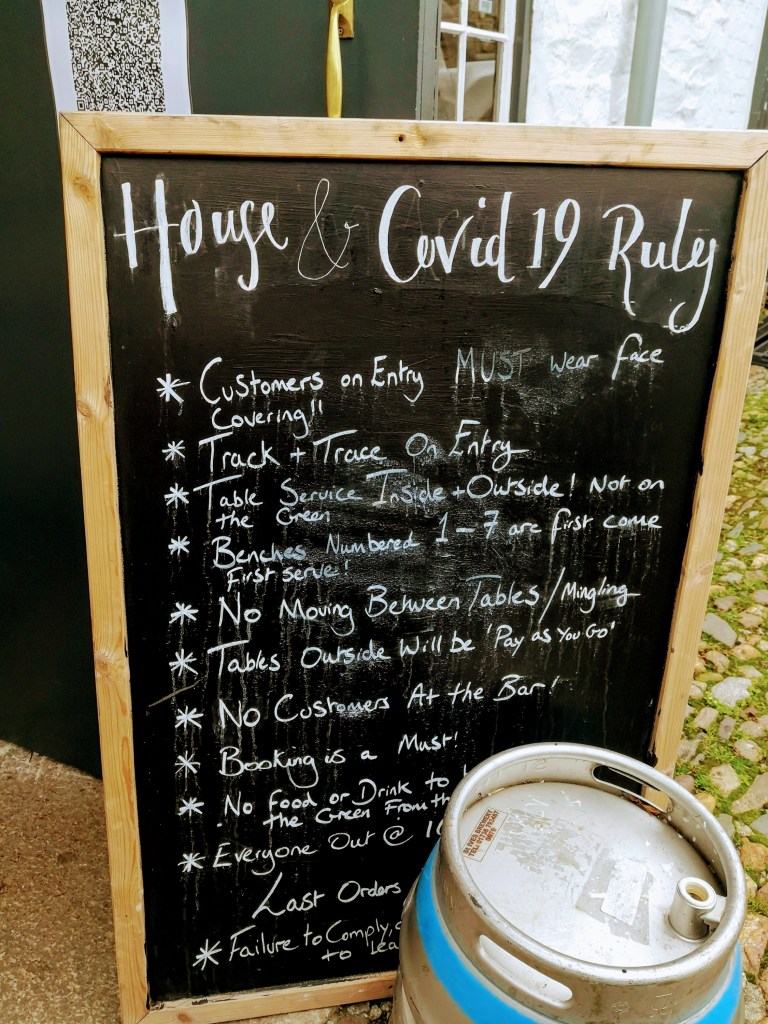 House & Covid 19 Rules
* Customers on Entry MUST wear face
Covering!!
* Track + Trace On Entry
* Table Service Inside + Outside! Not on
the Green
* Benches Numbered 1-7 are first come
First serve!
* No Moving Between Tables/Mingling
* Tables Outside Will be 'Pay as You Go'
* No Customers At the Bar!
* Booking is a Must!
* No food or Drink to
the Green From
* Everyone Out @
Last Orders
* Failure to Comply,
to
ST IVES BREWERY